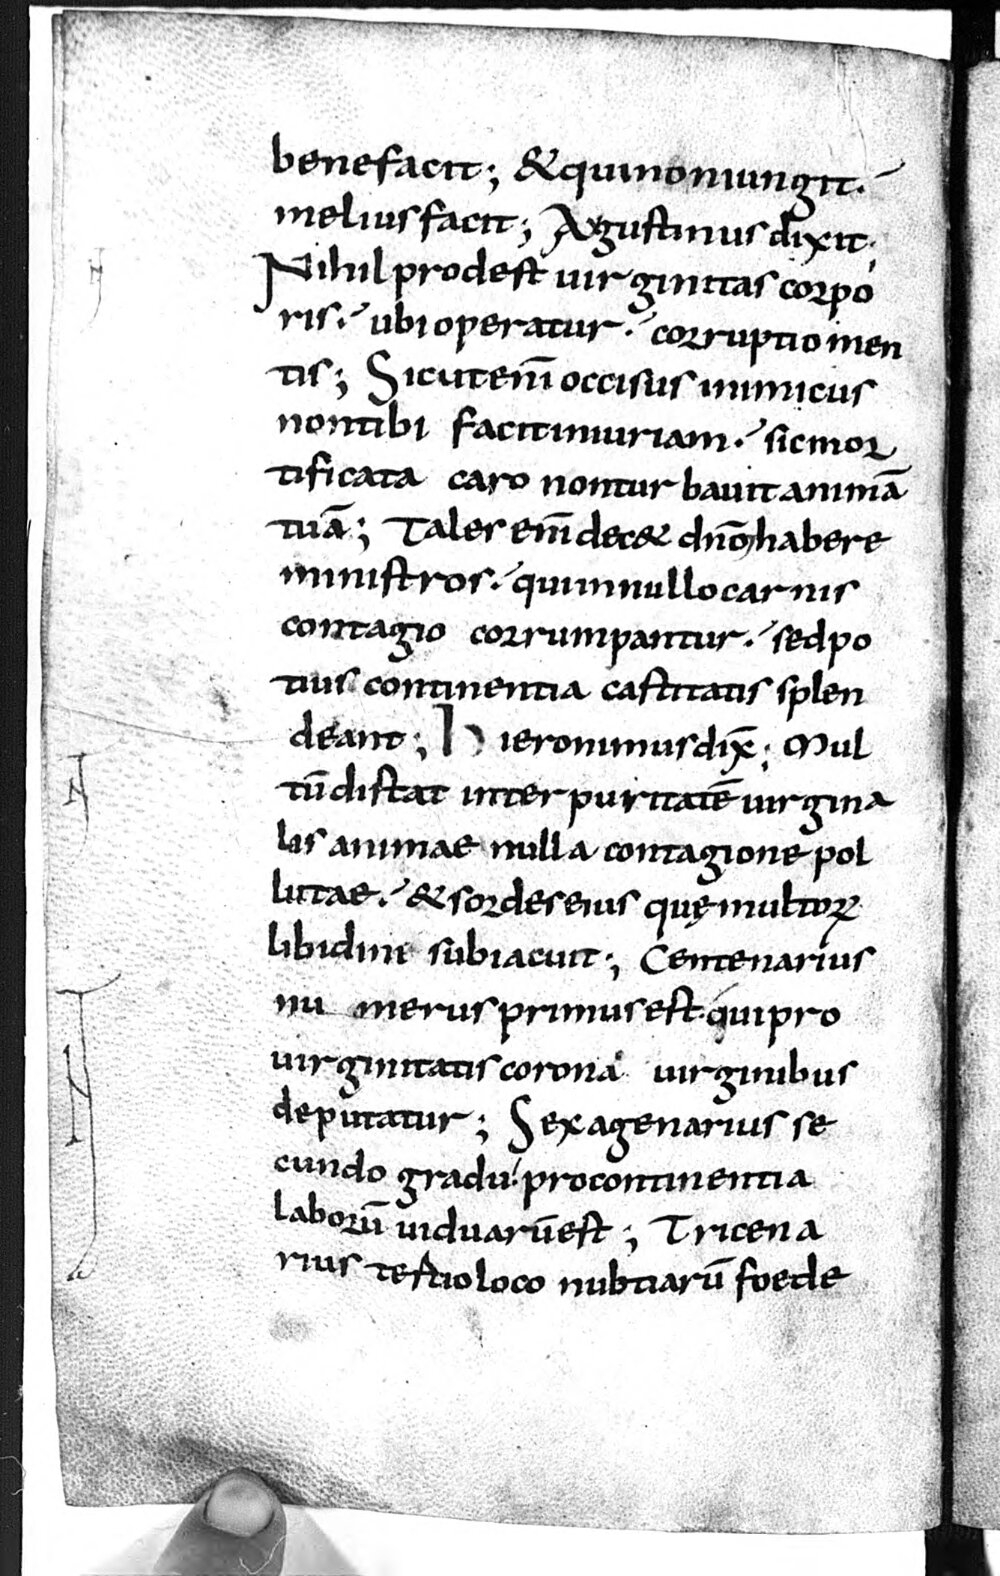 benefacit; & quinoniungit.
meliusfacit; Agustinus dixit;
Nihil prodest uirginitas corpo
ris. ubi operatur. corruptio men
tis; Sicut enī occisus inimicus
non tibi facit iniuriam. sic mor
tificata caro non turbauit animā
tuā; Tales enī dec& dn̄o habere
ministros. qui in nullo carnis
contagio corrumpantur. sed po
tius continentia castitatis splen
deant; Hieronimus dix̄; Mul
tū distat inter puritatē uirgina
lis animae nulla contagione pol
lutae. & sordes eius quę multoꝝ
libidini subiacuit; Centenarius
numerus primus est. qui pro
uirginitatis corona uirginibus
deputatur; Sexagenarius se
cundo gradu. pro continentia
laborū uiduarū est; Tricena
rius tertio loco nubtiarū foede